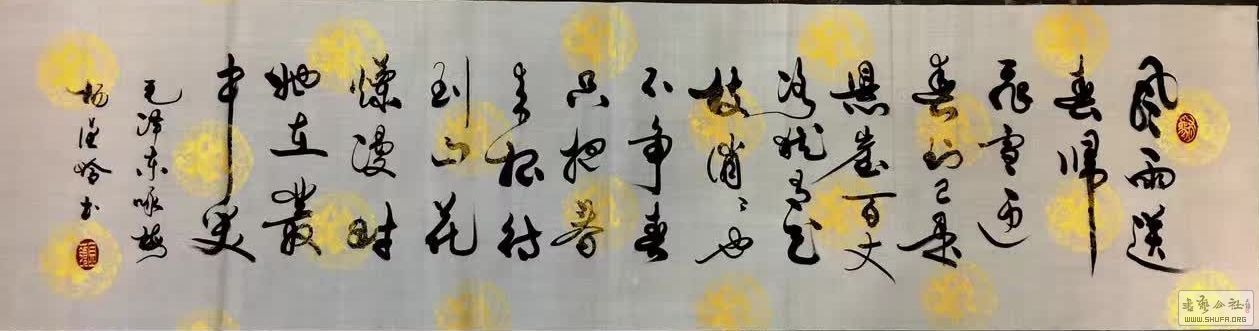 風雨送
春歸
飛雪迎
春到已是
懸崖百丈
冰猶有花
枝俏〻也
不争春
只把春
来報待
到山花
爛漫時
她在叢
中笑
毛泽东咏梅
杨书
书艺公社
WWW.SHUFA.ORG